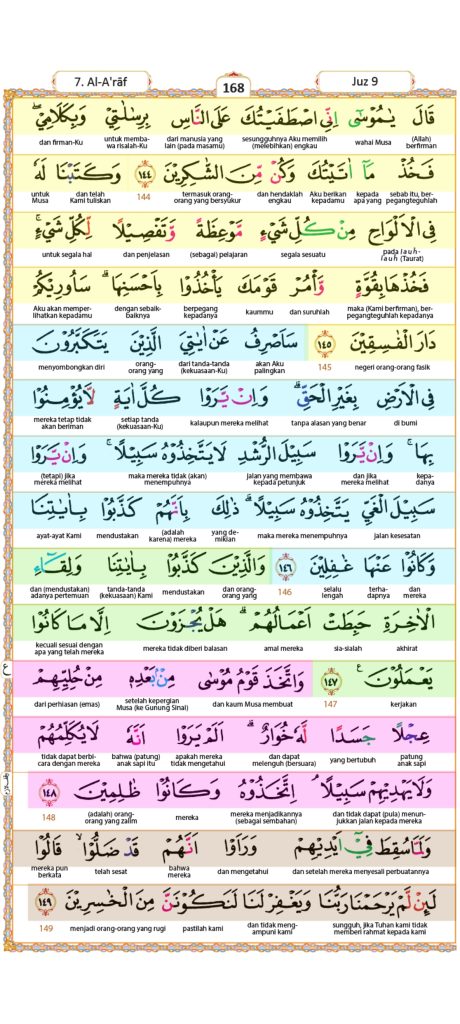 7. Al-A'rāf 168 Juz 9
قَالَ يٰمُوْسٰٓى اِنِّى اصْطَفَيْتُكَ عَلَى النَّاسِ بِرِسٰلٰتِيْ وَبِكَلَامِيْ ۖ
(Allah) berfirman wahai Musa sesungguhnya Aku memilih (melebihkan) engkau dari manusia yang lain (pada masamu) untuk memba-wa risalah-Ku dan firman-Ku
فَخُذْ مَآ اٰتَيْتُكَ وَكُنْ مِّنَ الشّٰكِرِيْنَ ١٤٤ وَكَتَبْنَا لَهٗ
sebab itu, ber-pegangteguhlah kepada apa yang Aku berikan kepadamu dan hendaklah engkau termasuk orang-orang yang bersyukur 144 dan telah Kami tuliskan untuk Musa
فِى الْاَلْوَاحِ مِنْ كُلِّ شَيْءٍ مَّوْعِظَةً وَّتَفْصِيْلًا لِّكُلِّ شَيْءٍ ۚ
pada lauh-lauh (Taurat) segala sesuatu (sebagai) pelajaran dan penjelasan untuk segala hal
فَخُذْهَا بِقُوَّةٍ وَّأْمُرْ قَوْمَكَ يَأْخُذُوْا بِاَحْسَنِهَا ۗ سَاُورِيْكُمْ
maka (Kami berfirman), ber-pegangteguhlah kepadanya dan suruhlah kaummu berpegang kepadanya dengan sebaik-baiknya Aku akan memper-lihatkan kepadamu
دَارَ الْفٰسِقِيْنَ ١٤٥ سَاَصْرِفُ عَنْ اٰيٰتِيَ الَّذِيْنَ يَتَكَبَّرُوْنَ
negeri orang-orang fasik 145 akan Aku palingkan dari tanda-tanda (kekuasaan-Ku) orang-orang yang menyombongkan diri
فِى الْاَرْضِ بِغَيْرِ الْحَقِّ ۗ وَاِنْ يَّرَوْا كُلَّ اٰيَةٍ لَّا يُؤْمِنُوْا
di bumi tanpa alasan yang benar kalaupun mereka melihat setiap tanda (kekuasaan-Ku) mereka tetap tidak akan beriman
بِهَا ۚ وَاِنْ يَّرَوْا سَبِيْلَ الرُّشْدِ لَا يَتَّخِذُوْهُ سَبِيْلًا ۚ وَاِنْ يَّرَوْا
kepa-danya dan jika mereka melihat jalan yang membawa kepada petunjuk maka mereka tidak (akan) menempuhnya (tetapi) jika mereka melihat
سَبِيْلَ الْغَيِّ يَتَّخِذُوْهُ سَبِيْلًا ۗ ذٰلِكَ بِاَنَّهُمْ كَذَّبُوْا بِاٰيٰتِنَا
jalan kesesatan maka mereka menempuhnya yang de-mikian (adalah) karena) mereka mendustakan ayat-ayat Kami
وَكَانُوْا عَنْهَا غٰفِلِيْنَ ١٤٦ وَالَّذِيْنَ كَذَّبُوْا بِاٰيٰتِنَا وَلِقَاۤءِ
dan mereka terha-dapnya selalu lengah 146 dan orang-orang yang mendustakan tanda-tanda (kekuasaan) Kami dan (mendustakan) adanya pertemuan
الْاٰخِرَةِ حَبِطَتْ اَعْمَالُهُمْ ۗ هَلْ يُجْزَوْنَ اِلَّا مَا كَانُوْا
akhirat sia-sialah amal mereka mereka tidak diberi balasan kecuali sesuai dengan apa yang telah mereka
يَعْمَلُوْنَ ࣖ ١٤٧ وَاتَّخَذَ قَوْمُ مُوْسٰى مِنْۢ بَعْدِهٖ مِنْ حُلِيِّهِمْ
kerjakan 147 dan kaum Musa membuat setelah kepergian Musa (ke Gunung Sinai) dari perhiasan (emas)
عِجْلًا جَسَدًا لَّهٗ خُوَارٌ ۗ اَلَمْ يَرَوْا اَنَّهٗ لَا يُكَلِّمُهُمْ
patung anak sapi yang bertubuh dan dapat melenguh (bersuara) apakah mereka tidak mengetahui bahwa (patung) anak sapi itu tidak dapat berbi-cara dengan mereka
وَلَا يَهْدِيْهِمْ سَبِيْلًا ۘ اِتَّخَذُوْهُ وَكَانُوْا ظٰلِمِيْنَ ١٤٨
dan tidak dapat (pula) menun-jukkan jalan kepada mereka mereka menjadikannya (sebagai sembahan) mereka (adalah) orang-orang yang zalim 148
وَلَمَّا سُقِطَ فِيْٓ اَيْدِيْهِمْ وَرَاَوْا اَنَّهُمْ قَدْ ضَلُّوْا ۙ قَالُوْا
dan setelah mereka menyesali perbuatannya dan mengetahui bahwa mereka telah sesat mereka pun berkata
لَىِٕنْ لَّمْ يَرْحَمْنَا رَبُّنَا وَيَغْفِرْ لَنَا لَنَكُوْنَنَّ مِنَ الْخٰسِرِيْنَ ١٤٩
sungguh, jika Tuhan kami tidak memberi rahmat kepada kami dan tidak meng-ampuni kami pastilah kami menjadi orang-orang yang rugi 149